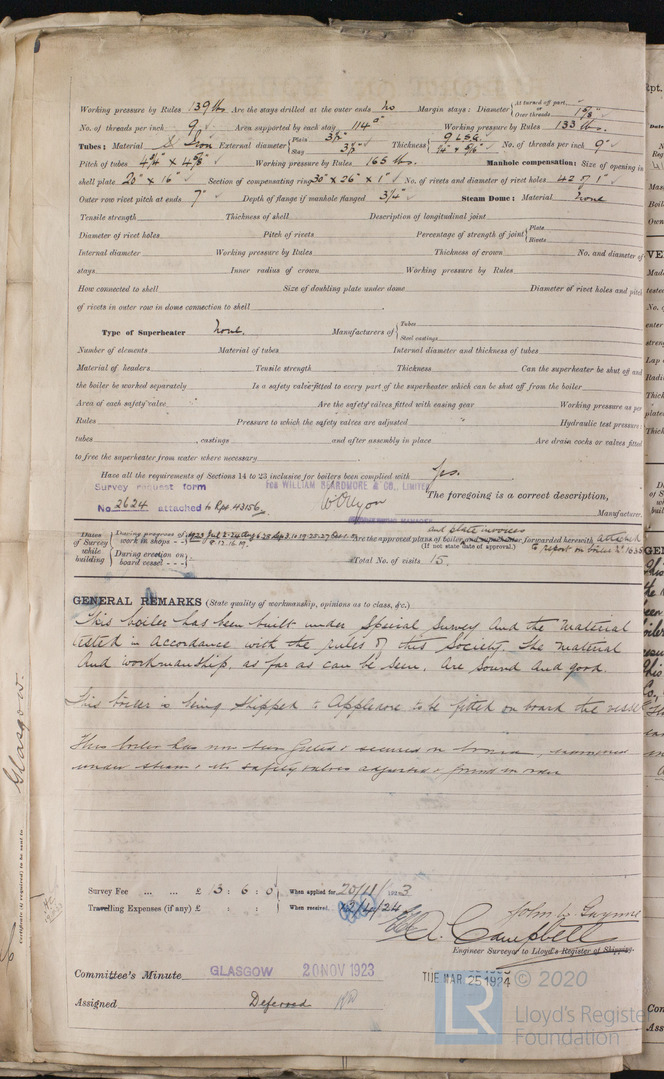 Working pressure by Rules 139 lbs Are the stays drilled at the outer ends No Margin stays: Diameter { At turned off part, " Over threads 1 5/8" ✓
No. of threads per inch 9 ✓ Area supported by each stay 114 □" Working pressure by Rules 133 lbs.
Tubes: Material Iron External diameter { Plain 3½" Stay 3½" ✓ Thickness { 9 LSG ¼" & 5/16" ✓ No. of threads per inch 9" ✓
Pitch of tubes Working pressure by Rules 165 lbs. Manhole compensation: Size of opening in
shell plate 20" x 16" ✓ Section of compensating ring 30" x 26" x 1" ✓ No. of rivets and diameter of rivet holes 42 of 1" ✓
Outer row rivet pitch at ends 7" ✓ Depth of flange if manhole flanged 3¼" ✓ Steam Dome: Material None
Tensile strength Thickness of shell Description of longitudinal joint
Diameter of rivet holes Pitch of rivets Percentage of strength of joint { Plate Rivets
Internal diameter Working pressure by Rules Thickness of crown No. and diameter of
stays Inner radius of crown Working pressure by Rules
How connected to shell Size of doubling plate under dome Diameter of rivet holes and pitch
of rivets in outer row in dome connection to shell
Type of Superheater None. Manufacturers of { Tubes Steel castings
Number of elements Material of tubes Internal diameter and thickness of tubes
Material of headers Tensile strength Thickness Can the superheater be shut off and
the boiler be worked separately Is a safety valve fitted to every part of the superheater which can be shut off from the boiler
Area of each safety valve Are the safety valves fitted with easing gear Working pressure as per
Rules Pressure to which the safety valves are adjusted Hydraulic test pressure:
tubes , castings and after assembly in place Are drain cocks or valves fitted
to free the superheater from water where necessary
Have all the requirements of Sections 14 to 23 inclusive for boilers been complied with Yes.
Survey request form
FOR WILLIAM BEARDMORE & CO., LIMITED
No. 2624 attached to Rpt 43156
The foregoing is a correct description,
Manufacturer.
and plate invoices
Dates of Survey while building { During progress of work in shops - - 1923 Are the approved plans of boiler and superheater forwarded herewith attached
(If not state date of approval.) to report on boiler No 1635
During erection on board vessel - - - Total No. of visits 15.
GENERAL REMARKS (State quality of workmanship, opinions as to class, &c.)
This boiler has been built under Special Survey and the material
tested in accordance with the rules of this Society. The material
and workmanship, as far as can be seen, are sound and good.
This boiler is being shipped to Appledore to be fitted on board the vessel
This boiler has now been fitted & secured on board, examined
under steam & its safety valves adjusted & found in order
Survey Fee ... ... £ 13 : 6 : 0 When applied for, 20/11/1923
Travelling Expenses (if any) £ : : When received,
A. Campbell
Engineer Surveyor to Lloyd's Register of Shipping.
Committee's Minute GLASGOW 20 NOV 1923
TUE. MAR. 25 1924
Assigned Deferred
© 2020
LR
Lloyd's Register
Foundation
Glasgow.
Certificate (if required) to be sent to